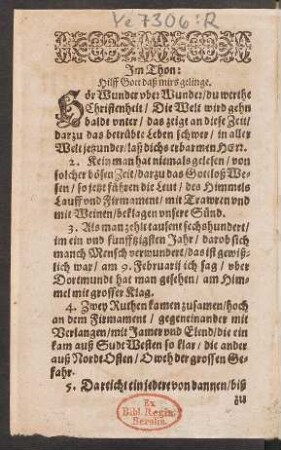 Ye 7306:R
Im Thon:
Hilff Gott daß mirs gelinge.
Hör Wunder vber Wunder/du werthe
Christenheit / Die Welt wird gehn
balde vnter / das zeigt an diese Zeit/
darzu das betrübte Leben schwer / in aller
Welt jetzunder/ laß dichs erbarmen HErr.
2. Kein man hat niemals gelesen / von
solcher bösen Zeit/darzu das Gottloß We-
sen / so jetzt führen die Leut / des Himmels
Lauff vnd Firmament / mit Trawren vnd
mit Weinen/beklagen vnsere Sünd.
3. Als man zehlt tausent sechshundert/
im ein vnd funfftzigsten Jahr / darob sich
manch Mensch verwundert/das ist gewiß-
lich war / am 9. Februarii ich sag / vber
Dortmundt hat man gesehen / am Him-
mel mit grosser Klag.
4. Zwey Ruthen kamen zusamen/hoch
an dem Firmament / gegeneinander mit
Verlangen/mit Jamer vnd Elend/die ein
kam auß Sude Westen so klar / die ander
auß Nordt Osten / O weh der grossen Ge-
fahr.
5. Da reicht ein jedere von dannen/biß
zu
Ex
Bibl. Regia
Berolin.